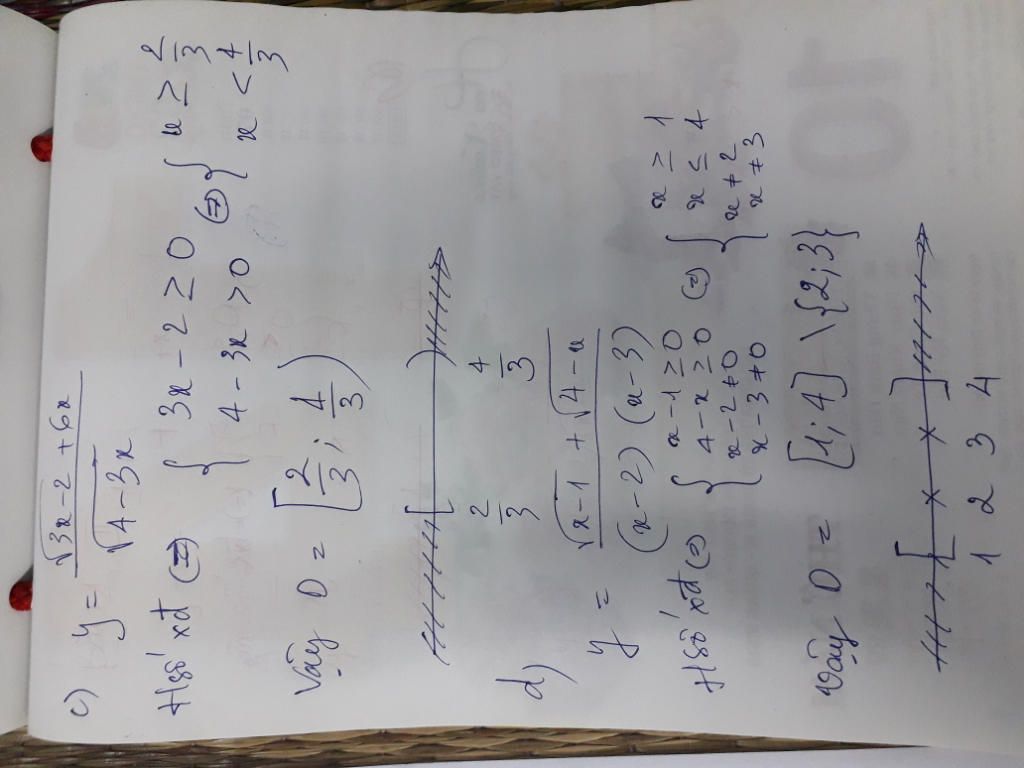 c) y = √3x-2 + 6x / √4-3x
Hsố xđ ⇔ { 3x-2 ≥ 0 ⇔ { x ≥ 2/3
4-3x > 0 x < 4/3
Vậy D = [2/3 ; 4/3)
2/3 4/3
d)
y = √x-1 + √4-x / (x-2)(x-3)
Hsố xđ ⇔ { x-1 ≥ 0 ⇔ { x ≥ 1
4-x ≥ 0 x ≤ 4
x-2 ≠ 0 x ≠ 2
x-3 ≠ 0 x ≠ 3
Vậy D = [1;4] \ {2;3}
1 2 3 4